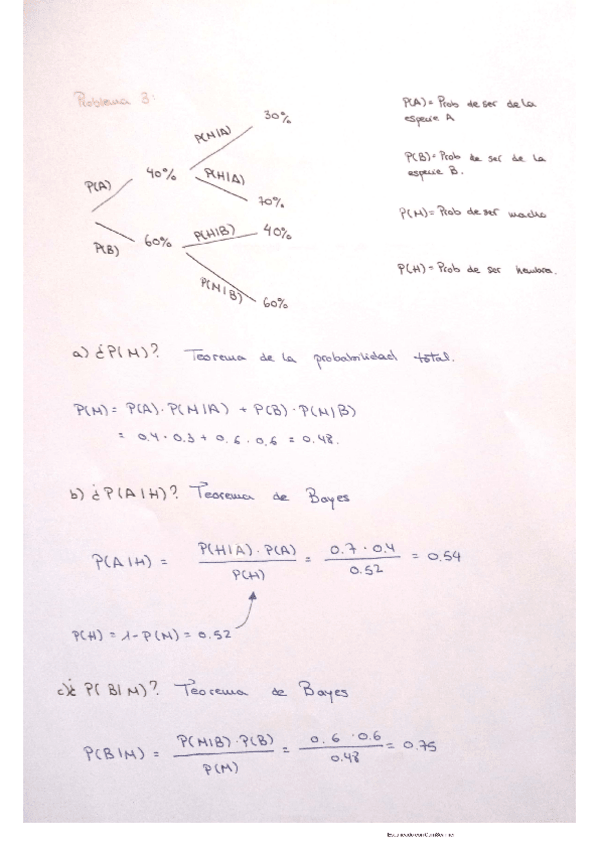 Problema 3:
P(A) = Prob de ser de la
especie A
P(B) = Prob de ser de la
especie B.
P(M) = Prob de ser macho
P(H) = Prob de ser hembra.
P(A)
40%
P(M|A)
30%
P(H|A)
70%
P(B)
60%
P(H|B)
40%
P(M|B)
60%
a) ¿P(M)? Teorema de la probabilidad total.
P(M) = P(A) · P(M|A) + P(B) · P(M|B)
= 0.4 · 0.3 + 0.6 · 0.6 = 0.48.
b) ¿P(A|H)? Teorema de Bayes
P(A|H) = P(H|A) · P(A) / P(H) = 0.7 · 0.4 / 0.52 = 0.54
P(H) = 1 - P(M) = 0.52
c) ¿P(B|M)? Teorema de Bayes
P(B|M) = P(M|B) · P(B) / P(M) = 0.6 · 0.6 / 0.48 = 0.75
Escaneado con CamScanner